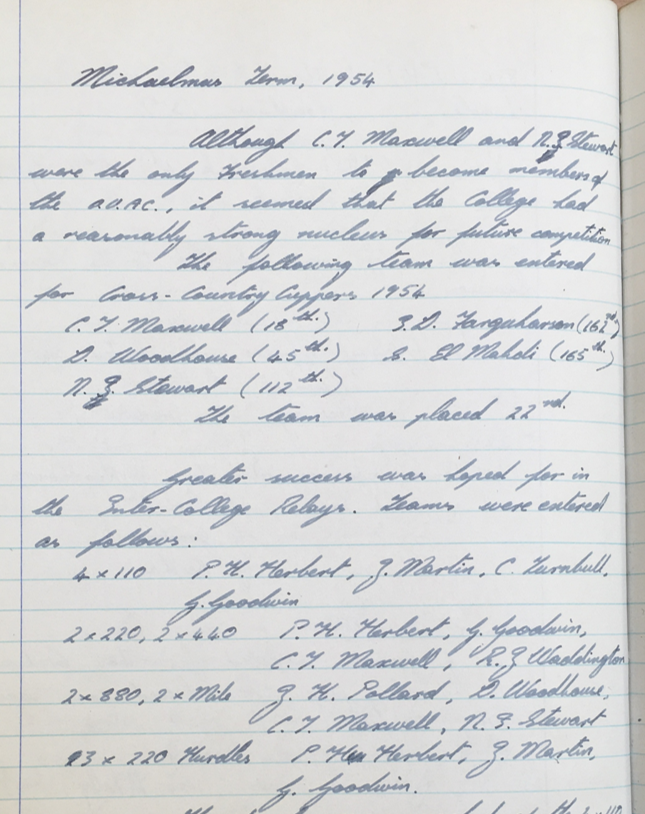 Michaelmas Term, 1954
Although C.T. Maxwell and N.J. Stewart
were the only Freshmen to become members of
the O.U.A.C., it seemed that the College had
a reasonably strong nucleus for future competition
The following team was entered
for Cross-Country Cuppers 1954
C.T. Maxwell (18th.) J.D. Farquharson (162nd)
D. Woodhouse (45th.) S. El Mahdi (165th.)
N.J. Stewart (112th.)
The team was placed 22nd.
Greater success was hoped for in
the Inter-College Relays. Teams were entered
as follows:
4 x 110 P.H. Herbert, J. Martin, C. Turnbull,
G. Goodwin
2 x 220, 2 x 440 P.H. Herbert, G. Goodwin,
C.T. Maxwell, R.J. Waddington
2 x 880, 2 x Mile J.K. Pollard, D. Woodhouse,
C.T. Maxwell, N.J. Stewart
3 x 220 Hurdles P.H. Herbert, J. Martin,
G. Goodwin.